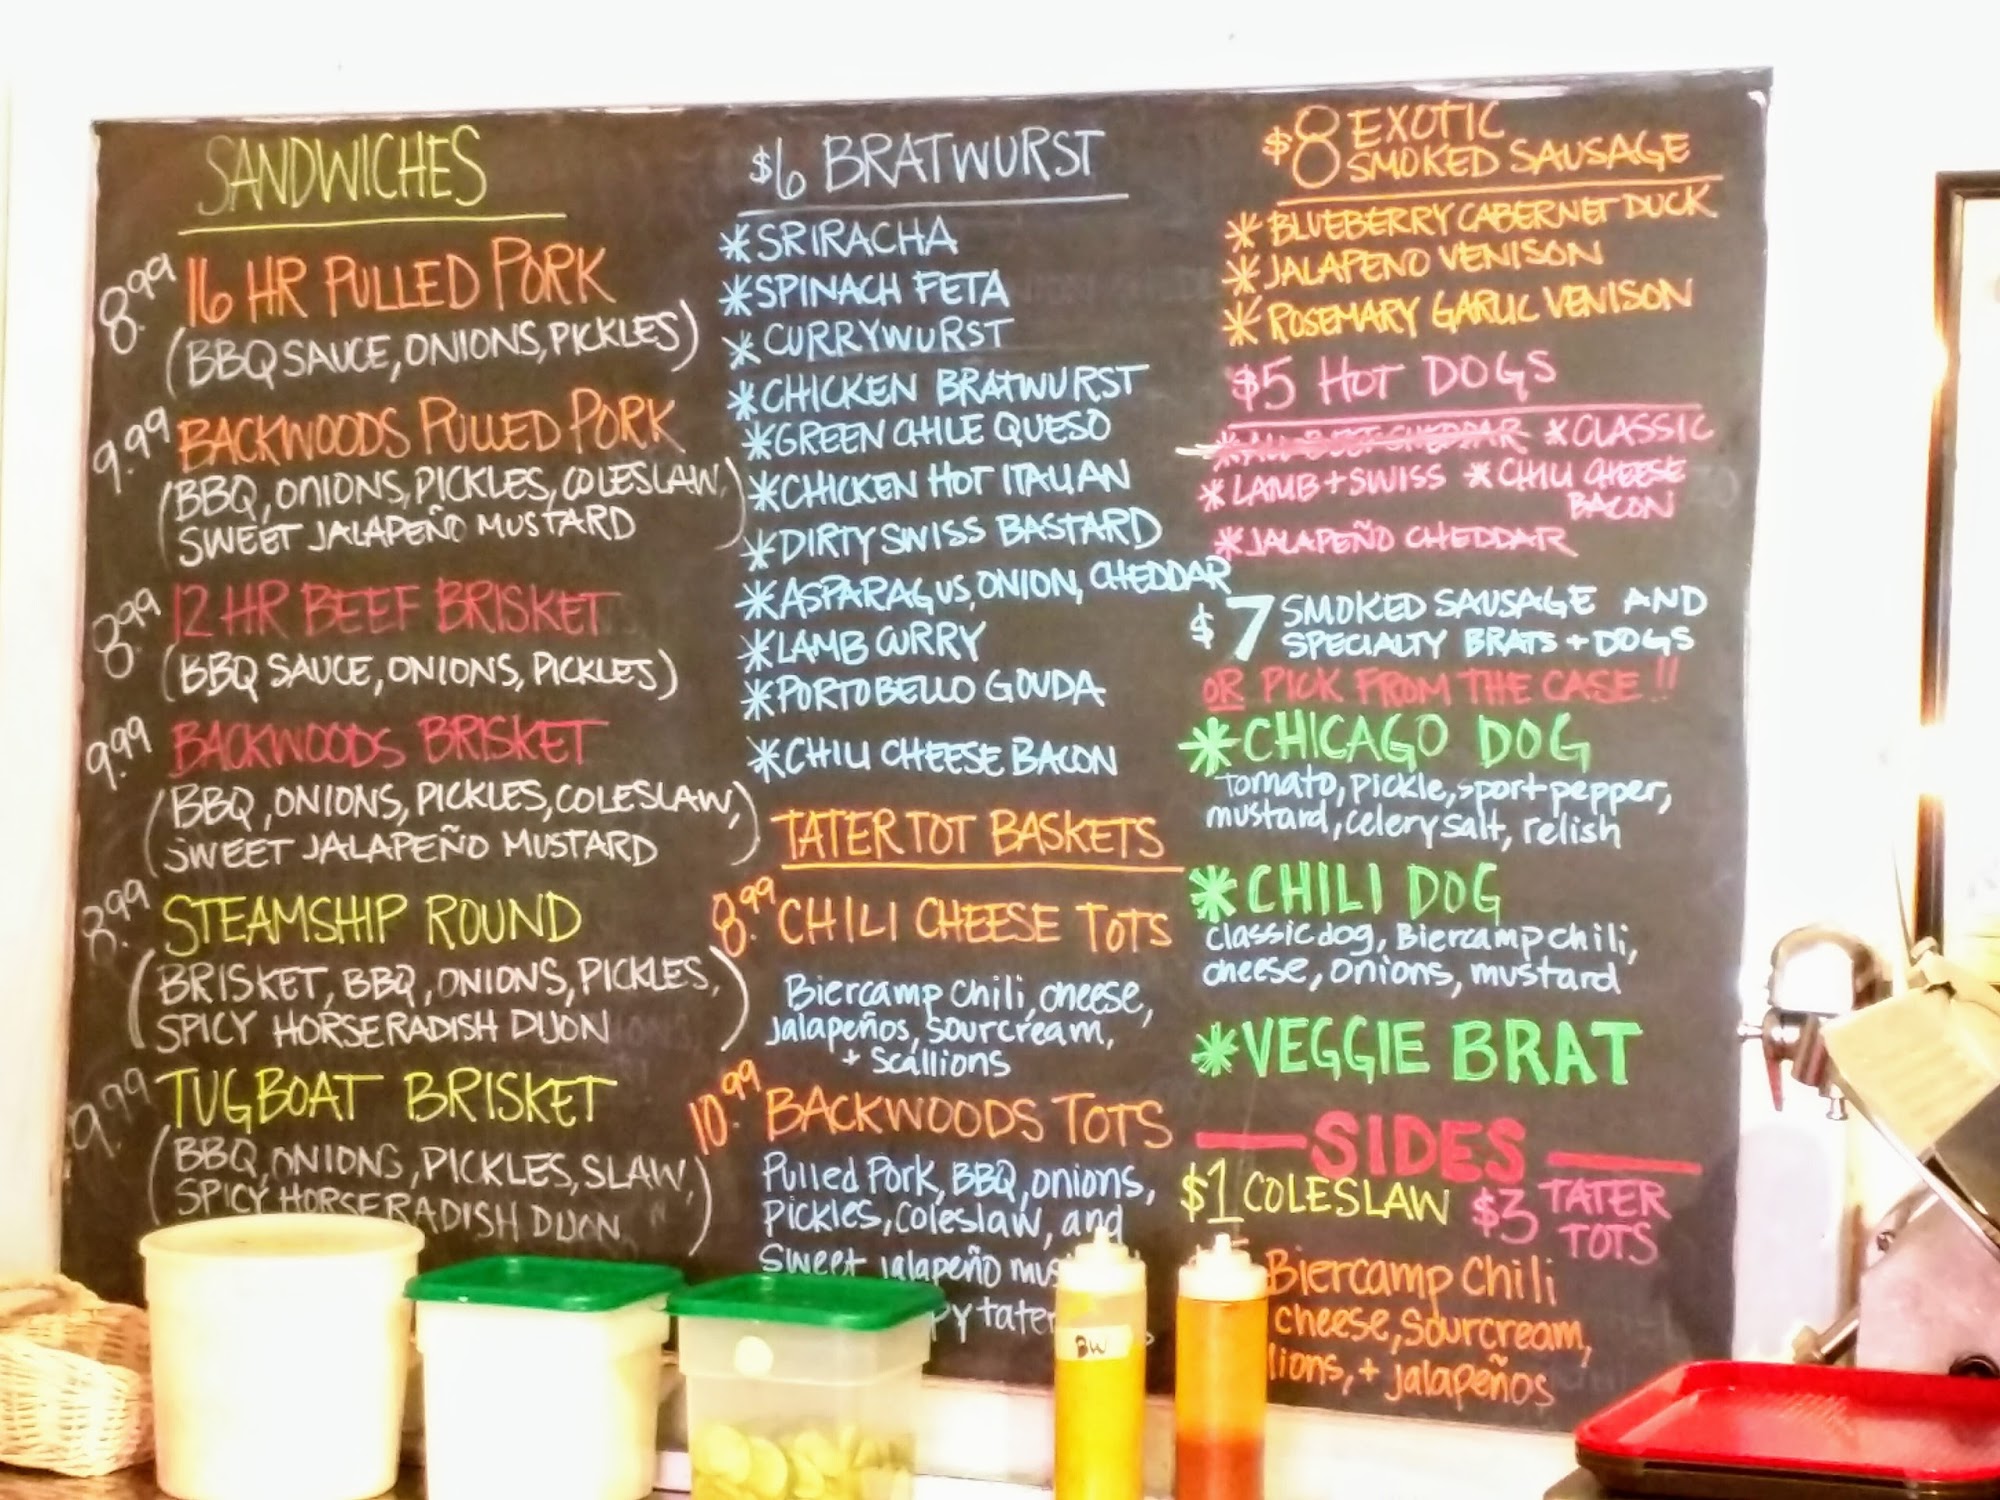 SANDWICHES
8.99 16 HR PULLED PORK
(BBQ SAUCE, ONIONS, PICKLES)
9.99 BACKWOODS PULLED PORK
(BBQ, ONIONS, PICKLES, COLESLAW,
SWEET JALAPEÑO MUSTARD)
8.99 12 HR BEEF BRISKET
(BBQ SAUCE, ONIONS, PICKLES)
9.99 BACKWOODS BRISKET
(BBQ, ONIONS, PICKLES, COLESLAW,
SWEET JALAPEÑO MUSTARD)
8.99 STEAMSHIP ROUND
(BRISKET, BBQ, ONIONS, PICKLES,
SPICY HORSERADISH DIJON)
9.99 TUGBOAT BRISKET
(BBQ, ONIONS, PICKLES, SLAW,
SPICY HORSERADISH DIJON)
$6 BRATWURST
*SRIRACHA
*SPINACH FETA
*CURRYWURST
*CHICKEN BRATWURST
*GREEN CHILE QUESO
*CHICKEN HOT ITALIAN
*DIRTY SWISS BASTARD
*ASPARAGUS, ONION, CHEDDAR
*LAMB CURRY
*PORTOBELLO GOUDA
*CHILI CHEESE BACON
TATER TOT BASKETS
8.99 CHILI CHEESE TOTS
Biercamp Chili, cheese,
Jalapeños, Sourcream,
+ Scallions
10.99 BACKWOODS TOTS
Pulled Pork, BBQ, onions,
Pickles, Coleslaw, and
Sweet jalapeño
$8 EXOTIC
SMOKED SAUSAGE
*BLUEBERRY CABERNET DUCK
*JALAPENO VENISON
*ROSEMARY GARLIC VENISON
$5 HOT DOGS
*ALL BEEF CHEDDAR *CLASSIC
*LAMB + SWISS *CHILI CHEESE
BACON
*JALAPEÑO CHEDDAR
$7 SMOKED SAUSAGE AND
SPECIALTY BRATS + DOGS
OR PICK FROM THE CASE!!
*CHICAGO DOG
Tomato, Pickle, sport pepper,
mustard, celery salt, relish
*CHILI DOG
Classic dog, Biercamp chili,
cheese, onions, mustard
*VEGGIE BRAT
SIDES
$1 COLESLAW $3 TATER
TOTS
Biercamp Chili
cheese, Sourcream,
+ jalapeños
BW